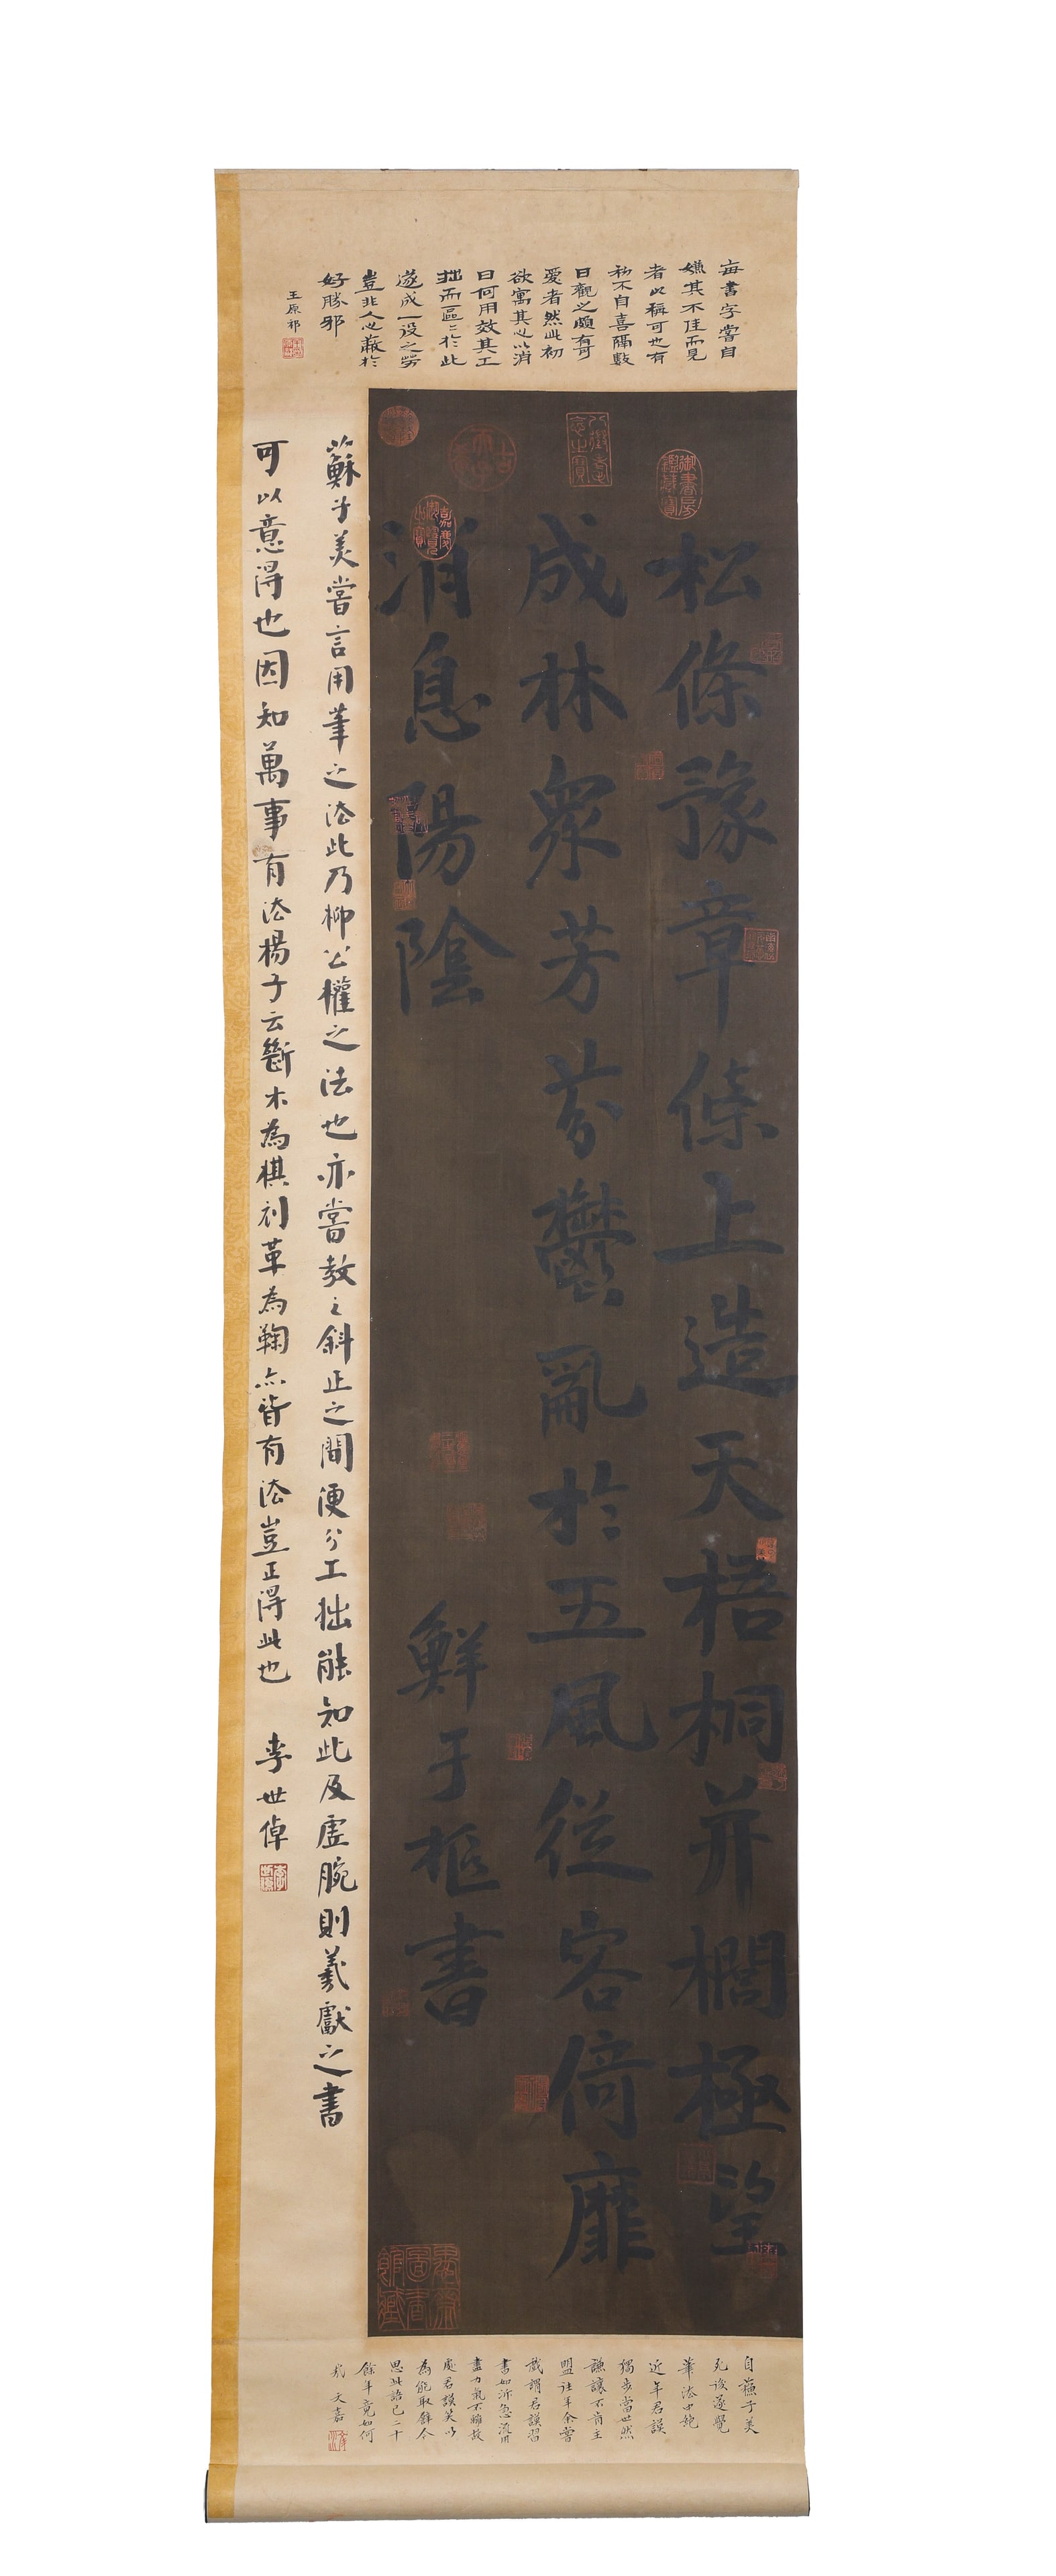 每書字嘗自
嫌其不佳而見
者或稱可也有
初不自喜隔數
日觀之頗有可
愛者然此初
欲寓其心以消
日何用效其工
拙而區區於此
遂成一役之勞
豈非人心蔽於
好勝邪
王原祁
御書房鑑藏寶
八徵耄念之寶
古希天子
嘉慶御覽之寶
松條豫章條上造天梧桐并櫚極望
成林眾芳芬鬱亂於五風從容倚靡
消息陽陰
鮮于樞書
蘇子美嘗言用筆之法此乃柳公權之法也亦嘗教之斜正之間便分工拙能知此及虛腕則羲獻之書
可以意得也因知萬事有法楊子云斷木為棋刓革為鞠亦皆有法豈正得此也
李世倬
自蘇子美
死後遂覺
筆法中絕
近年君謨
獨步當世然
謙讓不肯主
盟往年余嘗
戲謂君謨習
書如泝急流用
盡力氣不離故
處君謨笑以
為能取譬今
思此語已二十
餘年竟如何
哉 文嘉